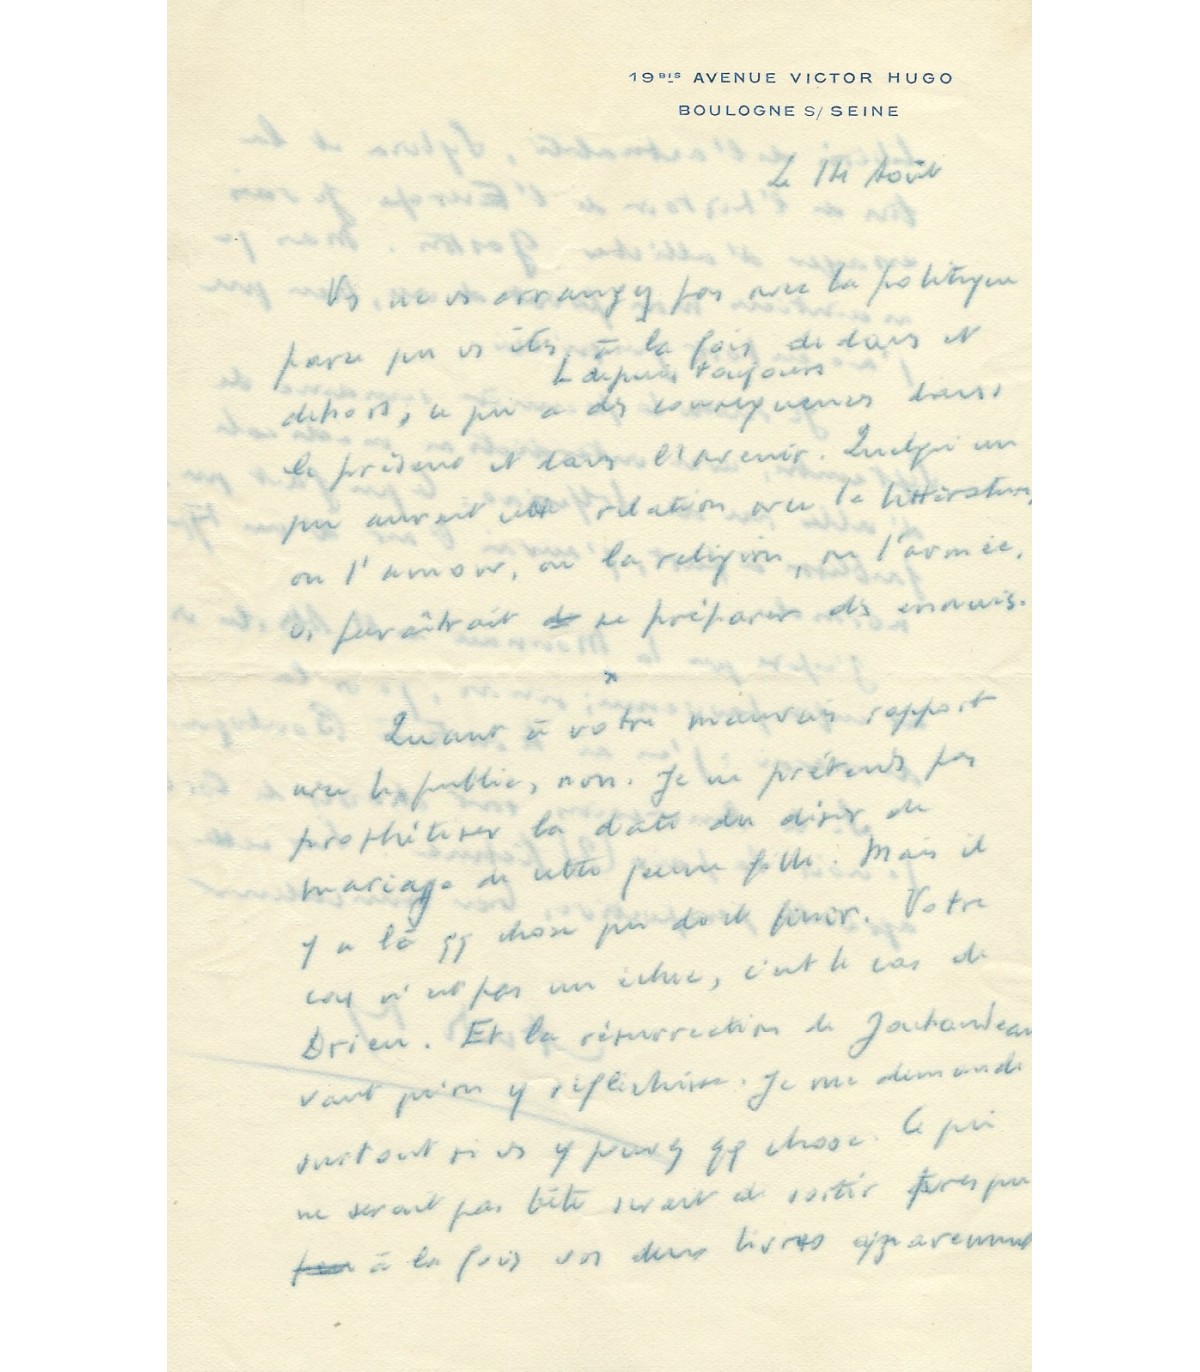 19 BIS AVENUE VICTOR HUGO
BOULOGNE S/ SEINE
Le 14 Août
Vs ne vs arrangez pas avec la politique
parce que vs êtes, à la fois dedans et
depuis toujours
dehors, ce qui a des conséquences dans
le présent et dans l'avenir. Quelqu'un
qui aurait cette relation avec la littérature,
ou l'amour, ou la religion, ou l'armée,
vs paraîtrait se préparer des ennuis.
*
Quant à votre mauvais rapport
avec le public, non. Je ne prétends pas
prophétiser la date du désir de
mariage de cette jeune fille. Mais il
y a là qq chose qui doit finir. Votre
cas n'est pas un échec, c'est le cas de
Drieu. Et la résurrection de Jouhandeau
vaut qu'on y réfléchisse. Je me demande
surtout si vs y pouvez qq chose. Ce qui
ne serait pas bête serait de sortir presque
à la fois vos deux livres apparemment